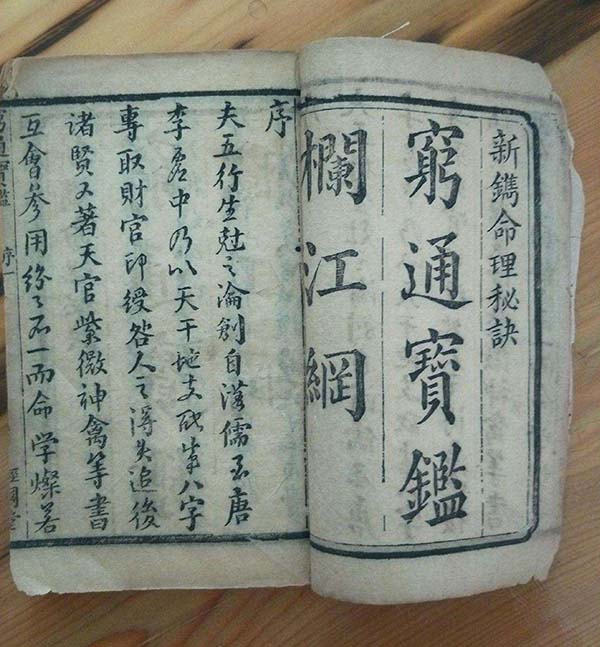 新鐫命理秘訣
窮通寶鑑
欄江網
序
夫五行生尅之論創自漢儒至唐
李虛中乃以天干地支配成八字
專取財官印綬人之得失迨後
諸賢又著天官紫微神禽等書
互會參用紛々不一而命學燦若
窮通寶鑑 序一